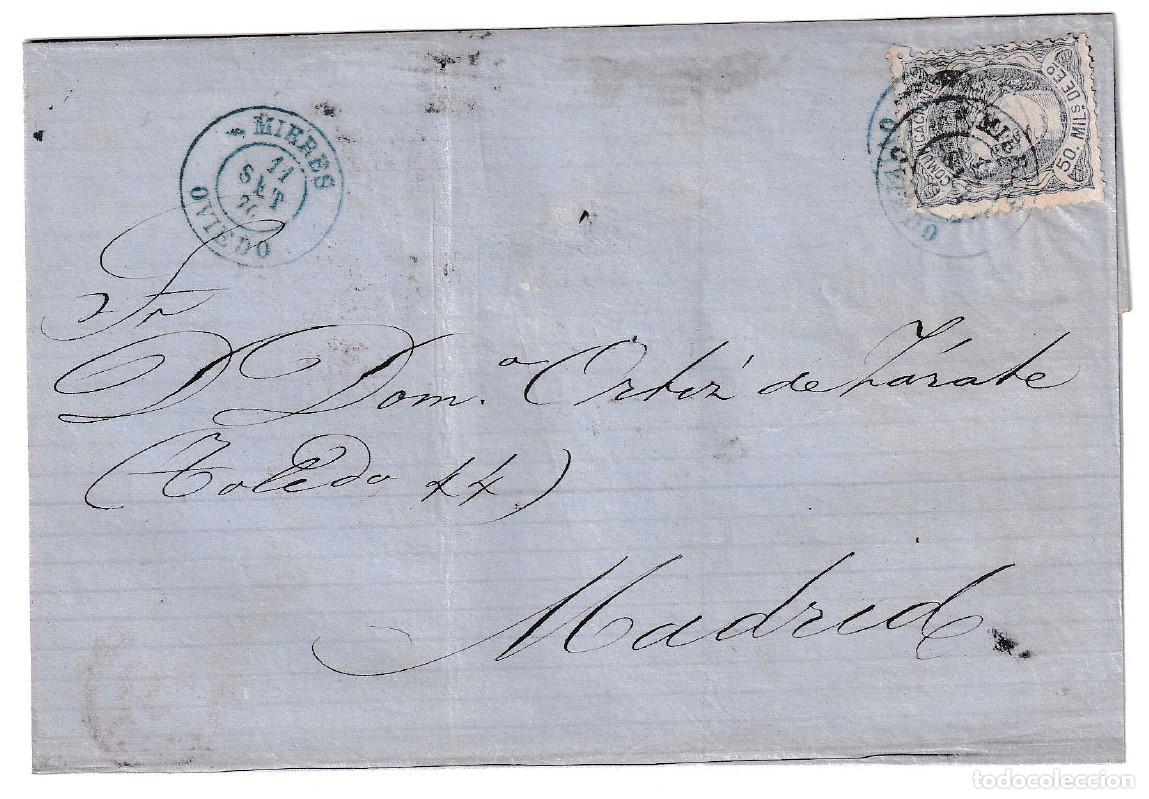 MIERES
11
SET
70
OVIEDO
COMUNICACIONES
50 MILS DE E.
MIERES
OVIEDO
Sr
D Dom.º Ortiz de Zárate
(Toledo 44)
Madrid
todocoleccion